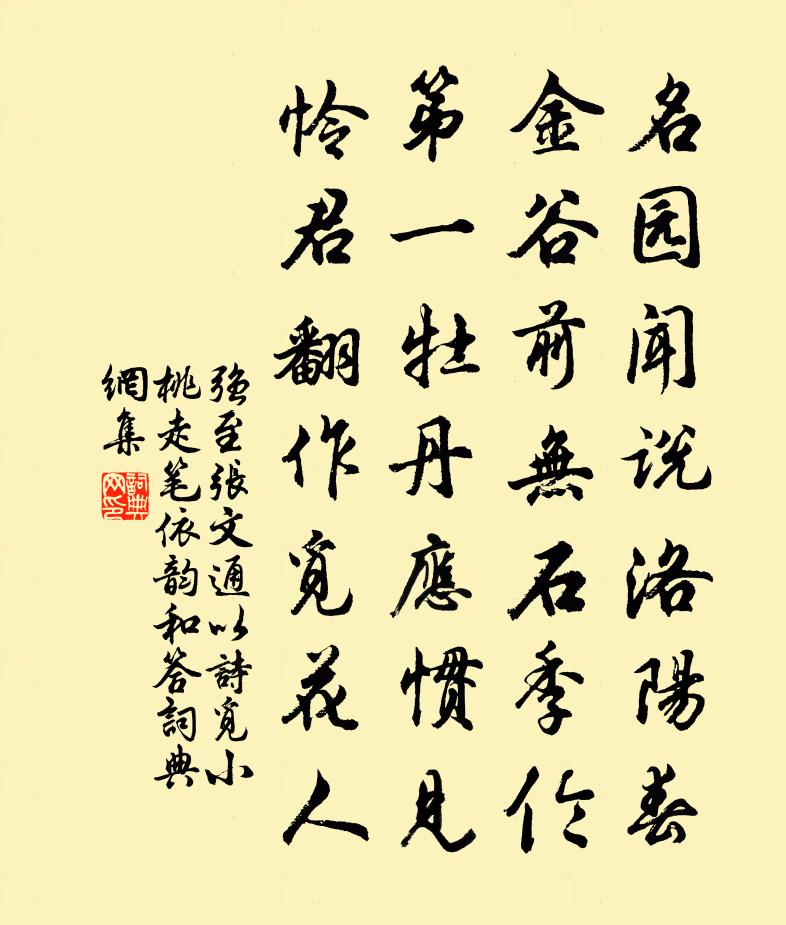 名园闻说洛陽春
金谷前無石季伦
第一牡丹應慣見
怜君翻作觅花人
强至張文通以詩觅小
桃走笔依韵和答詞典
網集
詞典
网印